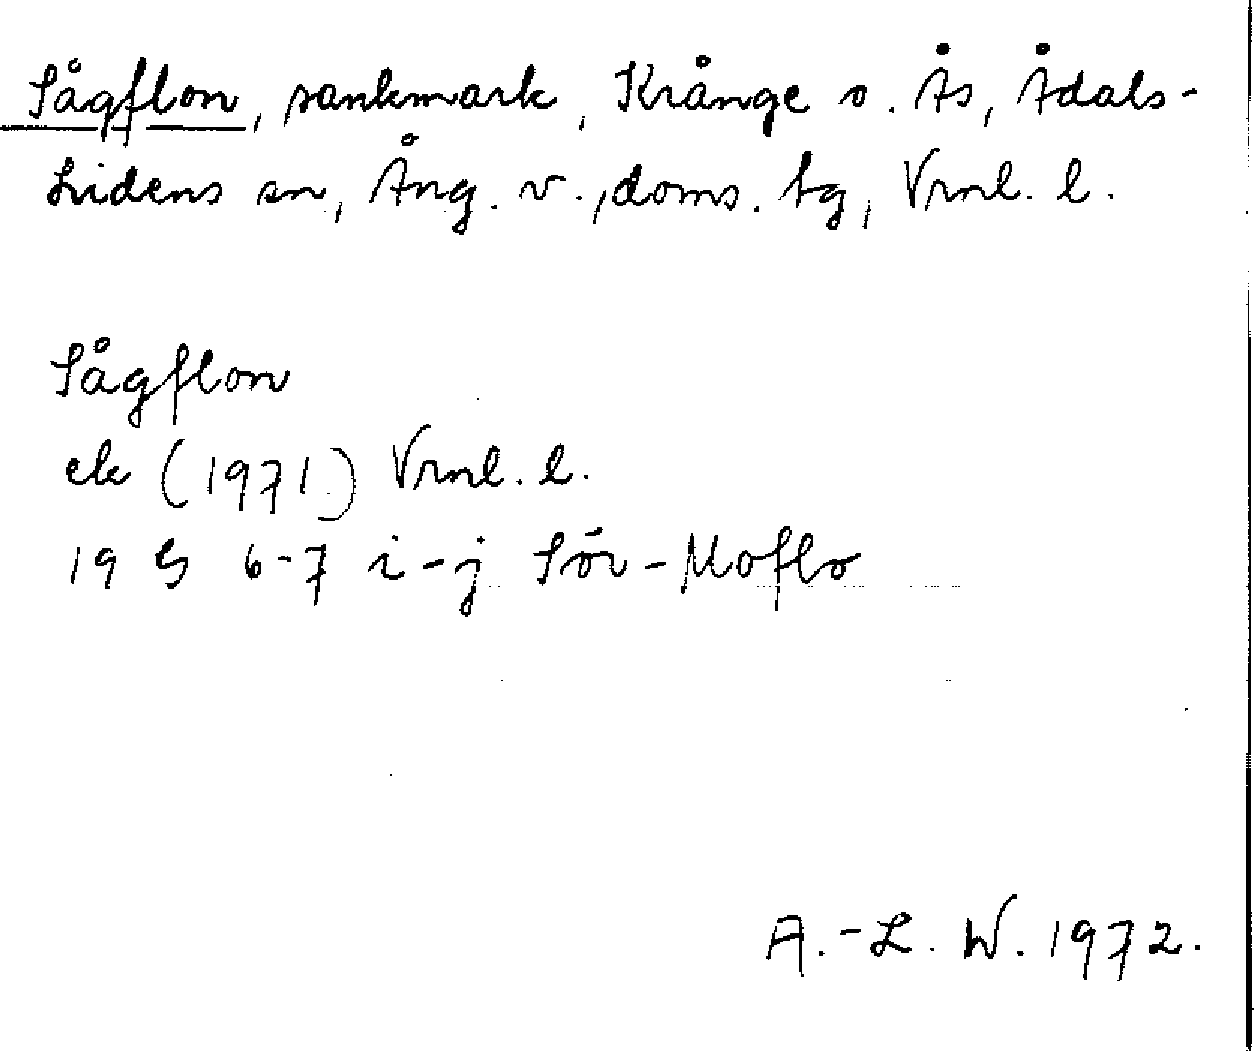 Sågflon, sankmark, Krånge o. Ås, Ådals-
Lidens sn, Ång. v., doms. tg, Vrnl. l.
Sågflon
ek (1971) Vrnl. l.
19 G 6-7 i-j Sör-Moflo
A.-L. W. 1972.